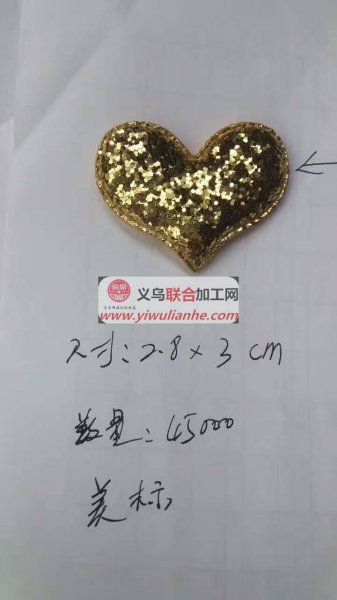 义乌联合加工网
www.yiwulianhe.com
尺寸:2.8×3cm
数量:45000
美标